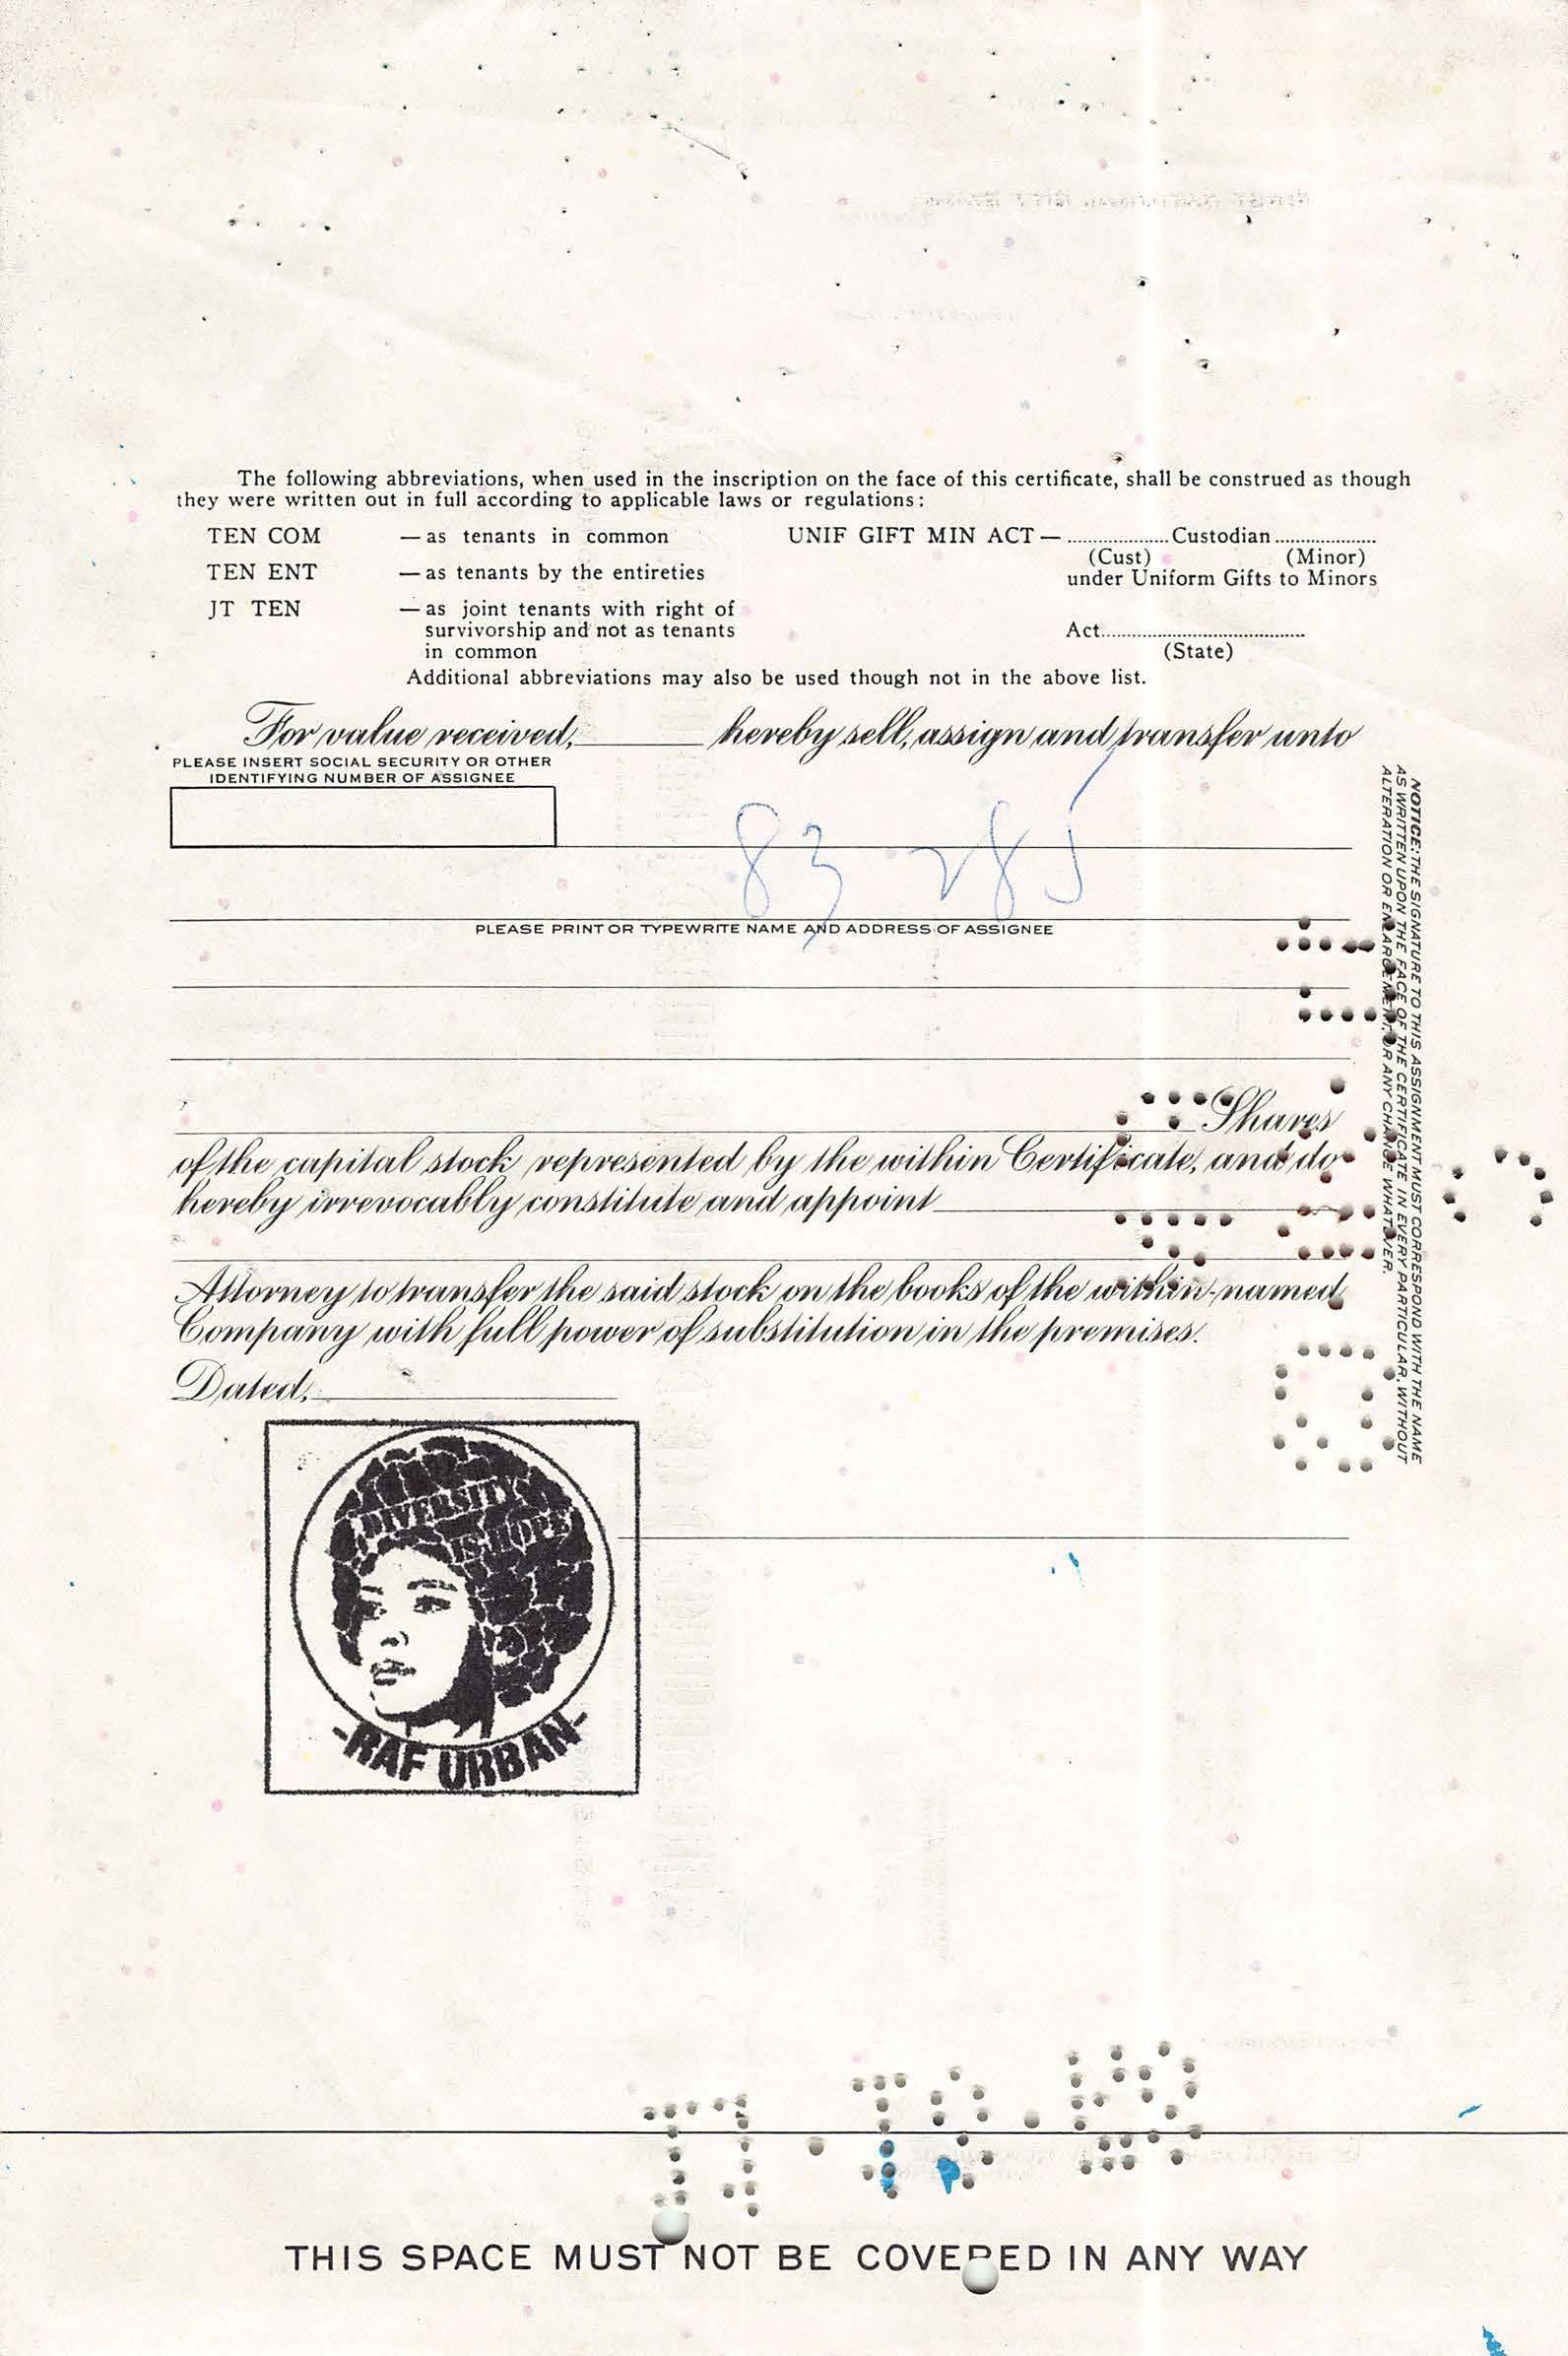 The following abbreviations, when used in the inscription on the face of this certificate, shall be construed as though
they were written out in full according to applicable laws or regulations:
TEN COM — as tenants in common
TEN ENT — as tenants by the entireties
JT TEN — as joint tenants with right of
survivorship and not as tenants
in common
UNIF GIFT MIN ACT — ....................Custodian....................
(Cust) (Minor)
under Uniform Gifts to Minors
Act........................................
(State)
Additional abbreviations may also be used though not in the above list.
For value received, ________ hereby sell, assign and transfer unto
PLEASE INSERT SOCIAL SECURITY OR OTHER
IDENTIFYING NUMBER OF ASSIGNEE
83 285
PLEASE PRINT OR TYPEWRITE NAME AND ADDRESS OF ASSIGNEE
Shares
of the capital stock represented by the within Certificate, and do
hereby irrevocably constitute and appoint
Attorney to transfer the said stock on the books of the within-named
Company with full power of substitution in the premises.
Dated,
NOTICE: THE SIGNATURE TO THIS ASSIGNMENT MUST CORRESPOND WITH THE NAME
AS WRITTEN UPON THE FACE OF THE CERTIFICATE IN EVERY PARTICULAR, WITHOUT
ALTERATION OR ENLARGEMENT, OR ANY CHANGE WHATEVER.
DIVERSITY
IS HOPE
-RAF URBAN-
THIS SPACE MUST NOT BE COVERED IN ANY WAY